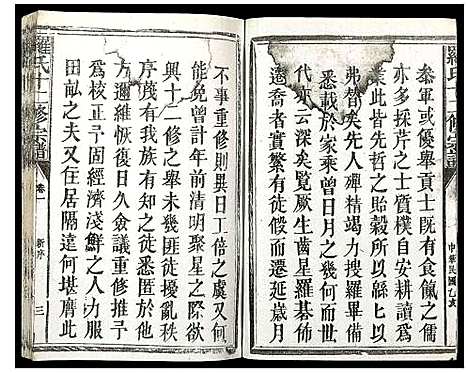 羅氏十二修宗譜
中華民國乙亥
叅軍或優舉貢士旣有食餼之儒
亦多採芹之士質樸自安耕讀為
弗替矣先人殫精竭力搜羅畢
悉載於家乘曾日月之幾何
代亦云先覺厥生齒星羅碁佈
遷喬者實繁有徒而遷延歲月
不事重修則異日工倍之虞又何
能免曾計年前清明聚星之際欲
興十二修之舉未幾匪徒擾亂秩
序殘有知之徒悉匿於他
方邇維恢復日久僉議重修推予
為校正予固經濟淺鮮之人力服
田畝之夫又且居隔遠何堪膺此
羅氏十二修宗譜
卷一
新序
三